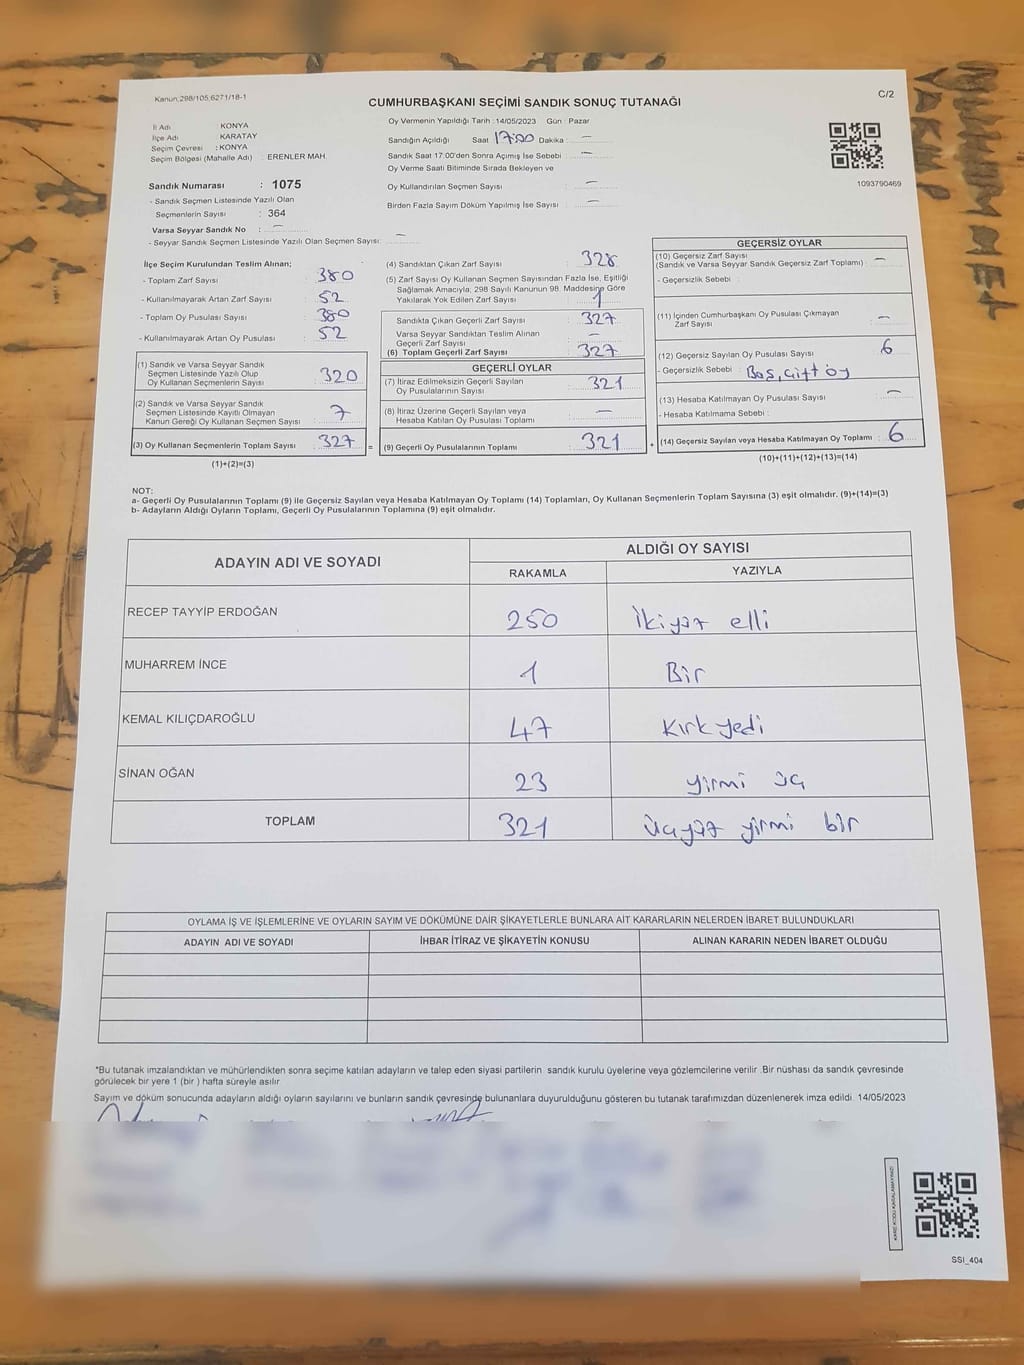 Kanun:298/105,6271/18-1
C/2
CUMHURBAŞKANI SEÇİMİ SANDIK SONUÇ TUTANAĞI
İl Adı : KONYA
İlçe Adı : KARATAY
Seçim Çevresi : KONYA
Seçim Bölgesi (Mahalle Adı) : ERENLER MAH.
Sandık Numarası : 1075
- Sandık Seçmen Listesinde Yazılı Olan
Seçmenlerin Sayısı : 364
Varsa Seyyar Sandık No : —
- Seyyar Sandık Seçmen Listesinde Yazılı Olan Seçmen Sayısı: —
Oy Vermenin Yapıldığı Tarih : 14/05/2023 Gün : Pazar
Sandığın Açıldığı Saat 17:00 Dakika : —
Sandık Saat 17:00'den Sonra Açılmış İse Sebebi : —
Oy Verme Saati Bitiminde Sırada Bekleyen ve
Oy Kullandırılan Seçmen Sayısı : —
Birden Fazla Sayım Döküm Yapılmış İse Sayısı : —
1093790469
İlçe Seçim Kurulundan Teslim Alınan;
- Toplam Zarf Sayısı : 380
- Kullanılmayarak Artan Zarf Sayısı : 52
- Toplam Oy Pusulası Sayısı : 380
- Kullanılmayarak Artan Oy Pusulası : 52
(1) Sandık ve Varsa Seyyar Sandık
Seçmen Listesinde Yazılı Olup
Oy Kullanan Seçmenlerin Sayısı : 320
(2) Sandık ve Varsa Seyyar Sandık
Seçmen Listesinde Kayıtlı Olmayan
Kanun Gereği Oy Kullanan Seçmen Sayısı : 7
(3) Oy Kullanan Seçmenlerin Toplam Sayısı : 327 =
(1)+(2)=(3)
(4) Sandıktan Çıkan Zarf Sayısı : 328
(5) Zarf Sayısı Oy Kullanan Seçmen Sayısından Fazla İse, Eşitliği
Sağlamak Amacıyla, 298 Sayılı Kanunun 98. Maddesine Göre
Yakılarak Yok Edilen Zarf Sayısı : 1
Sandıkta Çıkan Geçerli Zarf Sayısı : 327
Varsa Seyyar Sandıktan Teslim Alınan
Geçerli Zarf Sayısı : —
(6) Toplam Geçerli Zarf Sayısı : 327
GEÇERLİ OYLAR
(7) İtiraz Edilmeksizin Geçerli Sayılan
Oy Pusulalarının Sayısı : 321
(8) İtiraz Üzerine Geçerli Sayılan veya
Hesaba Katılan Oy Pusulası Toplamı : —
(9) Geçerli Oy Pusulalarının Toplamı : 321 +
GEÇERSİZ OYLAR
(10) Geçersiz Zarf Sayısı
(Sandık ve Varsa Seyyar Sandık Geçersiz Zarf Toplamı) : —
- Geçersizlik Sebebi :
(11) İçinden Cumhurbaşkanı Oy Pusulası Çıkmayan
Zarf Sayısı : —
(12) Geçersiz Sayılan Oy Pusulası Sayısı : 6
- Geçersizlik Sebebi : Boş, Çift oy
(13) Hesaba Katılmayan Oy Pusulası Sayısı : —
- Hesaba Katılmama Sebebi :
(14) Geçersiz Sayılan veya Hesaba Katılmayan Oy Toplamı : 6
(10)+(11)+(12)+(13)=(14)
NOT:
a- Geçerli Oy Pusulalarının Toplamı (9) ile Geçersiz Sayılan veya Hesaba Katılmayan Oy Toplamı (14) Toplamları, Oy Kullanan Seçmenlerin Toplam Sayısına (3) eşit olmalıdır. (9)+(14)=(3)
b- Adayların Aldığı Oyların Toplamı, Geçerli Oy Pusulalarının Toplamına (9) eşit olmalıdır.
ADAYIN ADI VE SOYADI ALDIĞI OY SAYISI
RAKAMLA YAZIYLA
RECEP TAYYİP ERDOĞAN 250 İkiyüz elli
MUHARREM İNCE 1 Bir
KEMAL KILIÇDAROĞLU 47 Kırk yedi
SİNAN OĞAN 23 yirmi üç
TOPLAM 321 üçyüz yirmi bir
OYLAMA İŞ VE İŞLEMLERİNE VE OYLARIN SAYIM VE DÖKÜMÜNE DAİR ŞİKAYETLERLE BUNLARA AİT KARARLARIN NELERDEN İBARET BULUNDUKLARI
ADAYIN ADI VE SOYADI İHBAR İTİRAZ VE ŞİKAYETİN KONUSU ALINAN KARARIN NEDEN İBARET OLDUĞU
*Bu tutanak imzalandıktan ve mühürlendikten sonra seçime katılan adayların ve talep eden siyasi partilerin sandık kurulu üyelerine veya gözlemcilerine verilir .Bir nüshası da sandık çevresinde
görülecek bir yere 1 (bir ) hafta süreyle asılır
Sayım ve döküm sonucunda adayların aldığı oyların sayılarını ve bunların sandık çevresinde bulunanlara duyurulduğunu gösteren bu tutanak tarafımızdan düzenlenerek imza edildi. 14/05/2023
SSI_404